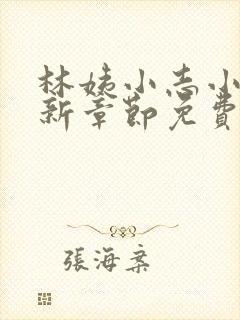 林姨小志小
新章節免費
張海棠